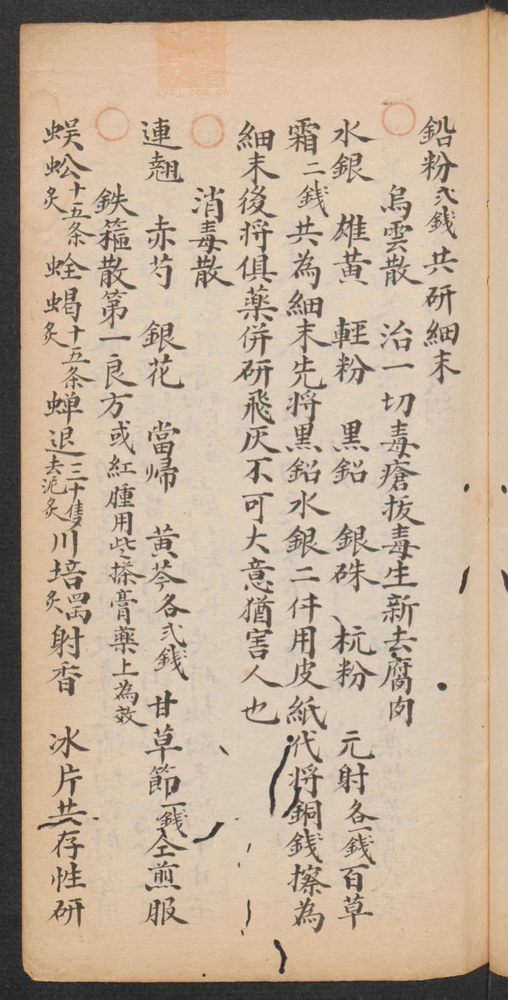 鉛粉弍錢共研細末
烏雲散 治一切毒瘡拔毒生新去腐肉
水銀 雄黃 輕粉 黑鉛 銀硃 杭粉 元射各一錢百草
霜二錢共為細末先將黑鉛水銀二件用皮紙代將銅錢擦為
細末後將俱藥併研飛灰不可大意猶害人也
消毒散
連翹 赤芍 銀花 當帰 黃芩各弍錢 甘草節一錢仝煎服
鉄箍散第一良方或紅腫用此搽膏藥上為效
蜈蚣十五条炙 蛤蝎十五条炙 蝉退三十隻去泥炙 川培炙 射香 冰片共存性研